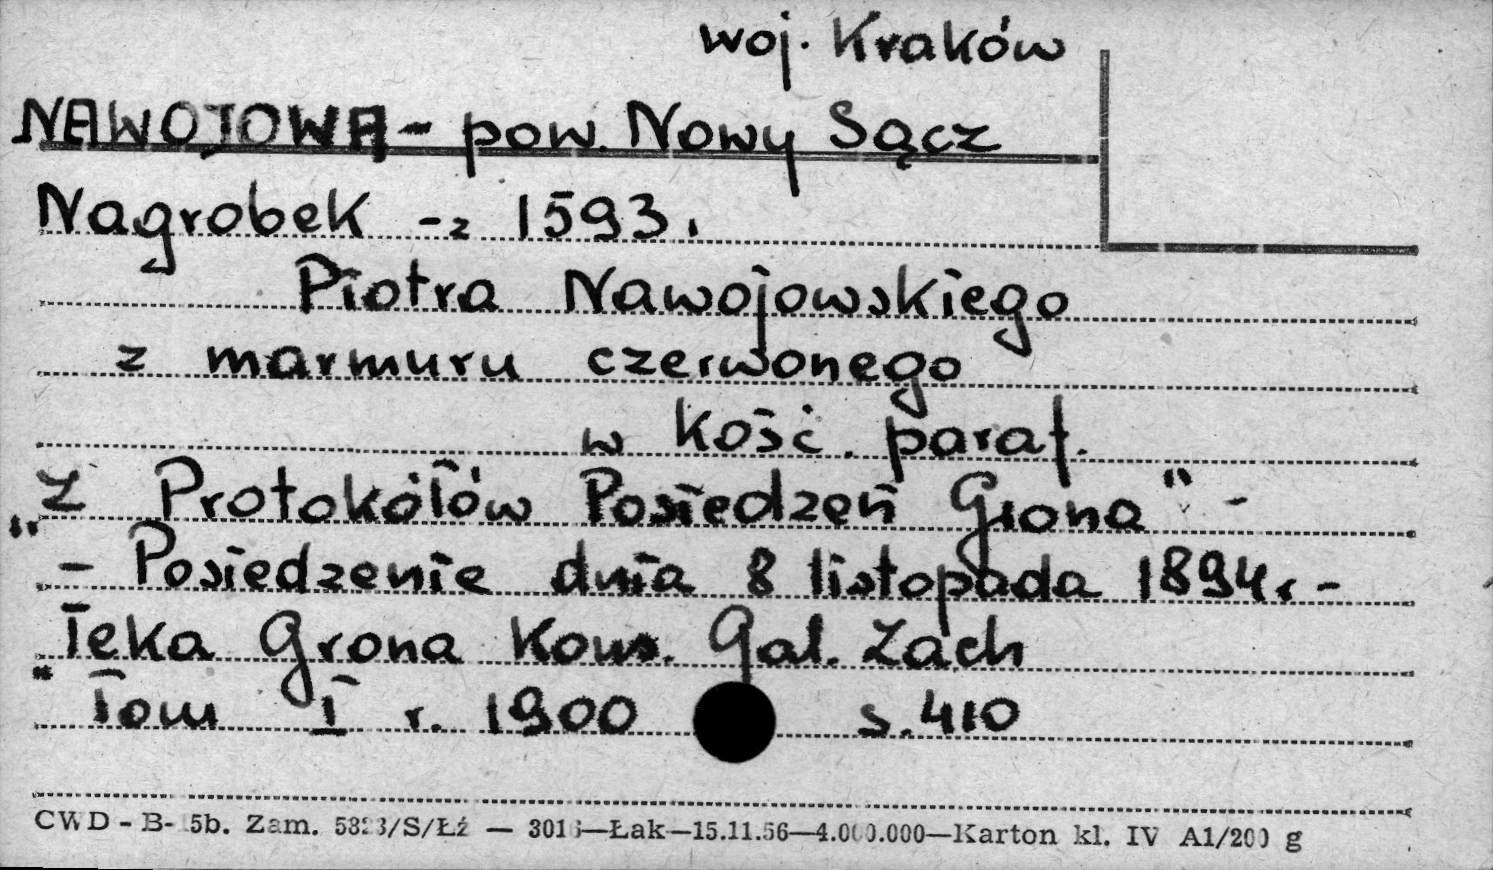 woj. Kraków
NAWOJOWA - pow. Nowy Sącz
Nagrobek - z 1593.
Piotra Nawojowskiego
z marmuru czerwonego
w Kość. paraf.
"Z Protokółów Posiedzeń Grona" -
- Posiedzenie dnia 8 listopada 1894r. -
"Teka Grona Kons. Gal. Zach
Tom I r. 1900 s. 410
CWD - B- 5b. Zam. /S/Łź — —Łak—15.11.56—4.000.000—Karton kl. IV A1/200 g